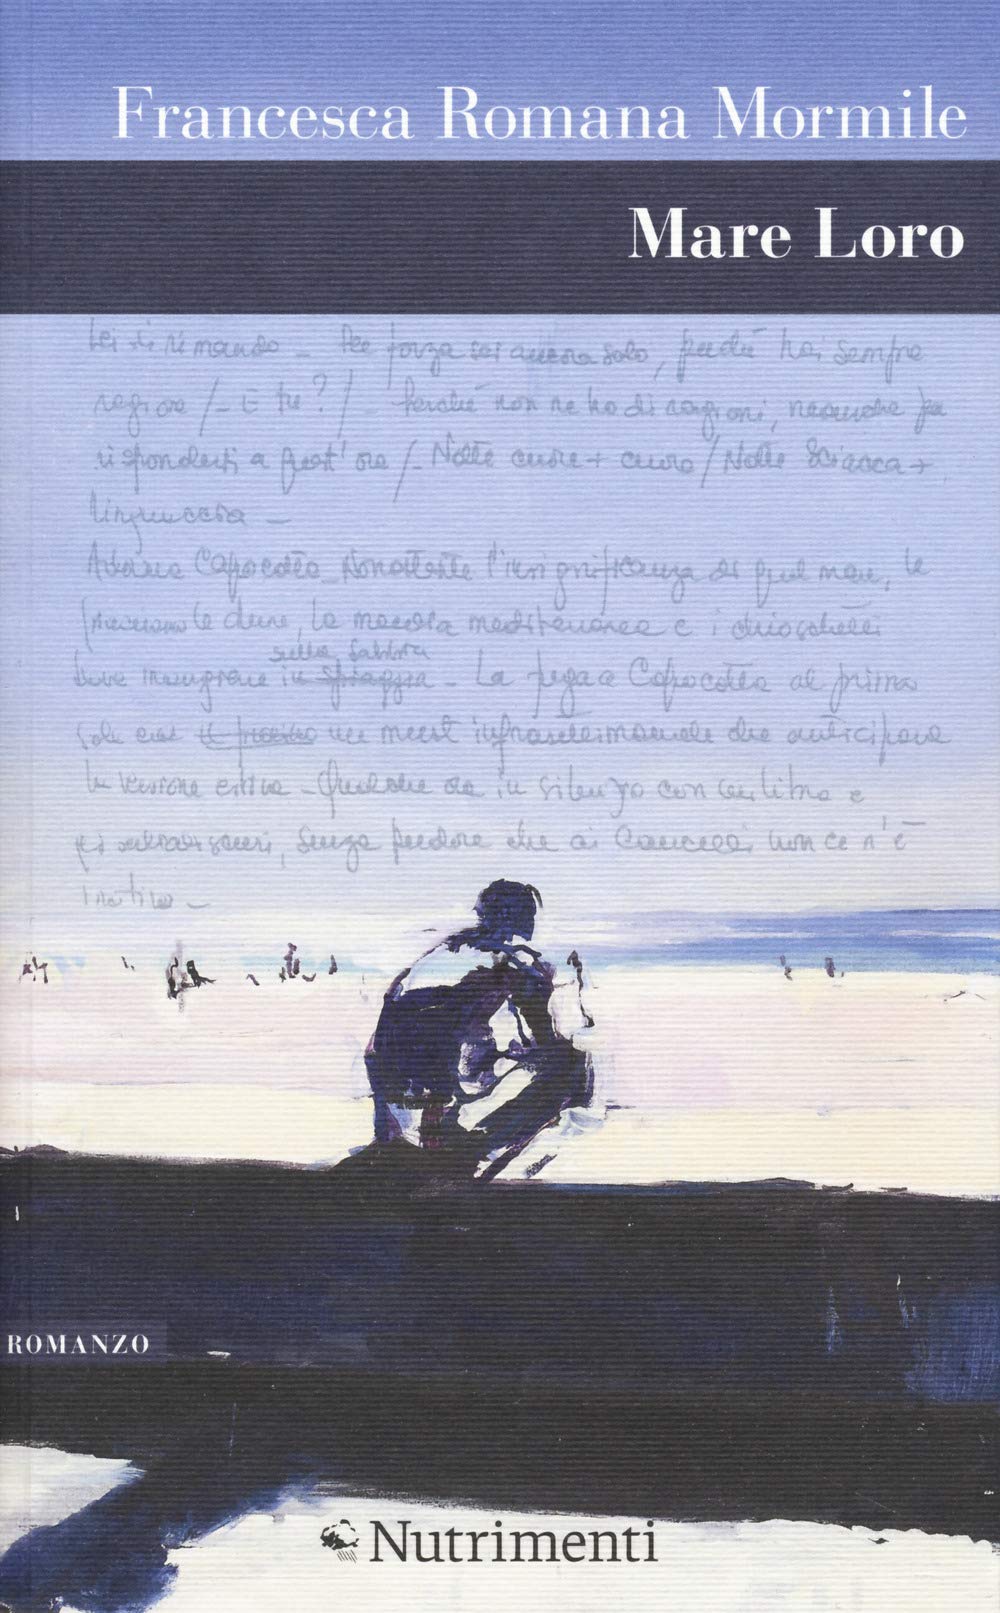 Francesca Romana Mormile
Mare Loro
Lei ti rimando _ Per forza sei ancora solo, perché hai sempre
ragione /_ E tu? / Perché non ne ho di ragioni, neanche per
risponderti a quest'ora /_ Notte cuore + cuore / Notte Sciacca +
linguaccia _
Adorava Capocotta_ Nonostante l'insignificanza di quel mare, le
piacevano le dune, la macchia mediterranea e i chioschetti
sulla sabbia
in spiaggia _ La fuga a Capocotta al primo
sole era un must infrasettimanale che anticipava
la versione estiva _ Qualche ora in silenzio con un libro e
gli auricolari, senza pudore che ai Cancelli non ce n'è
motivo _
ROMANZO
Nutrimenti